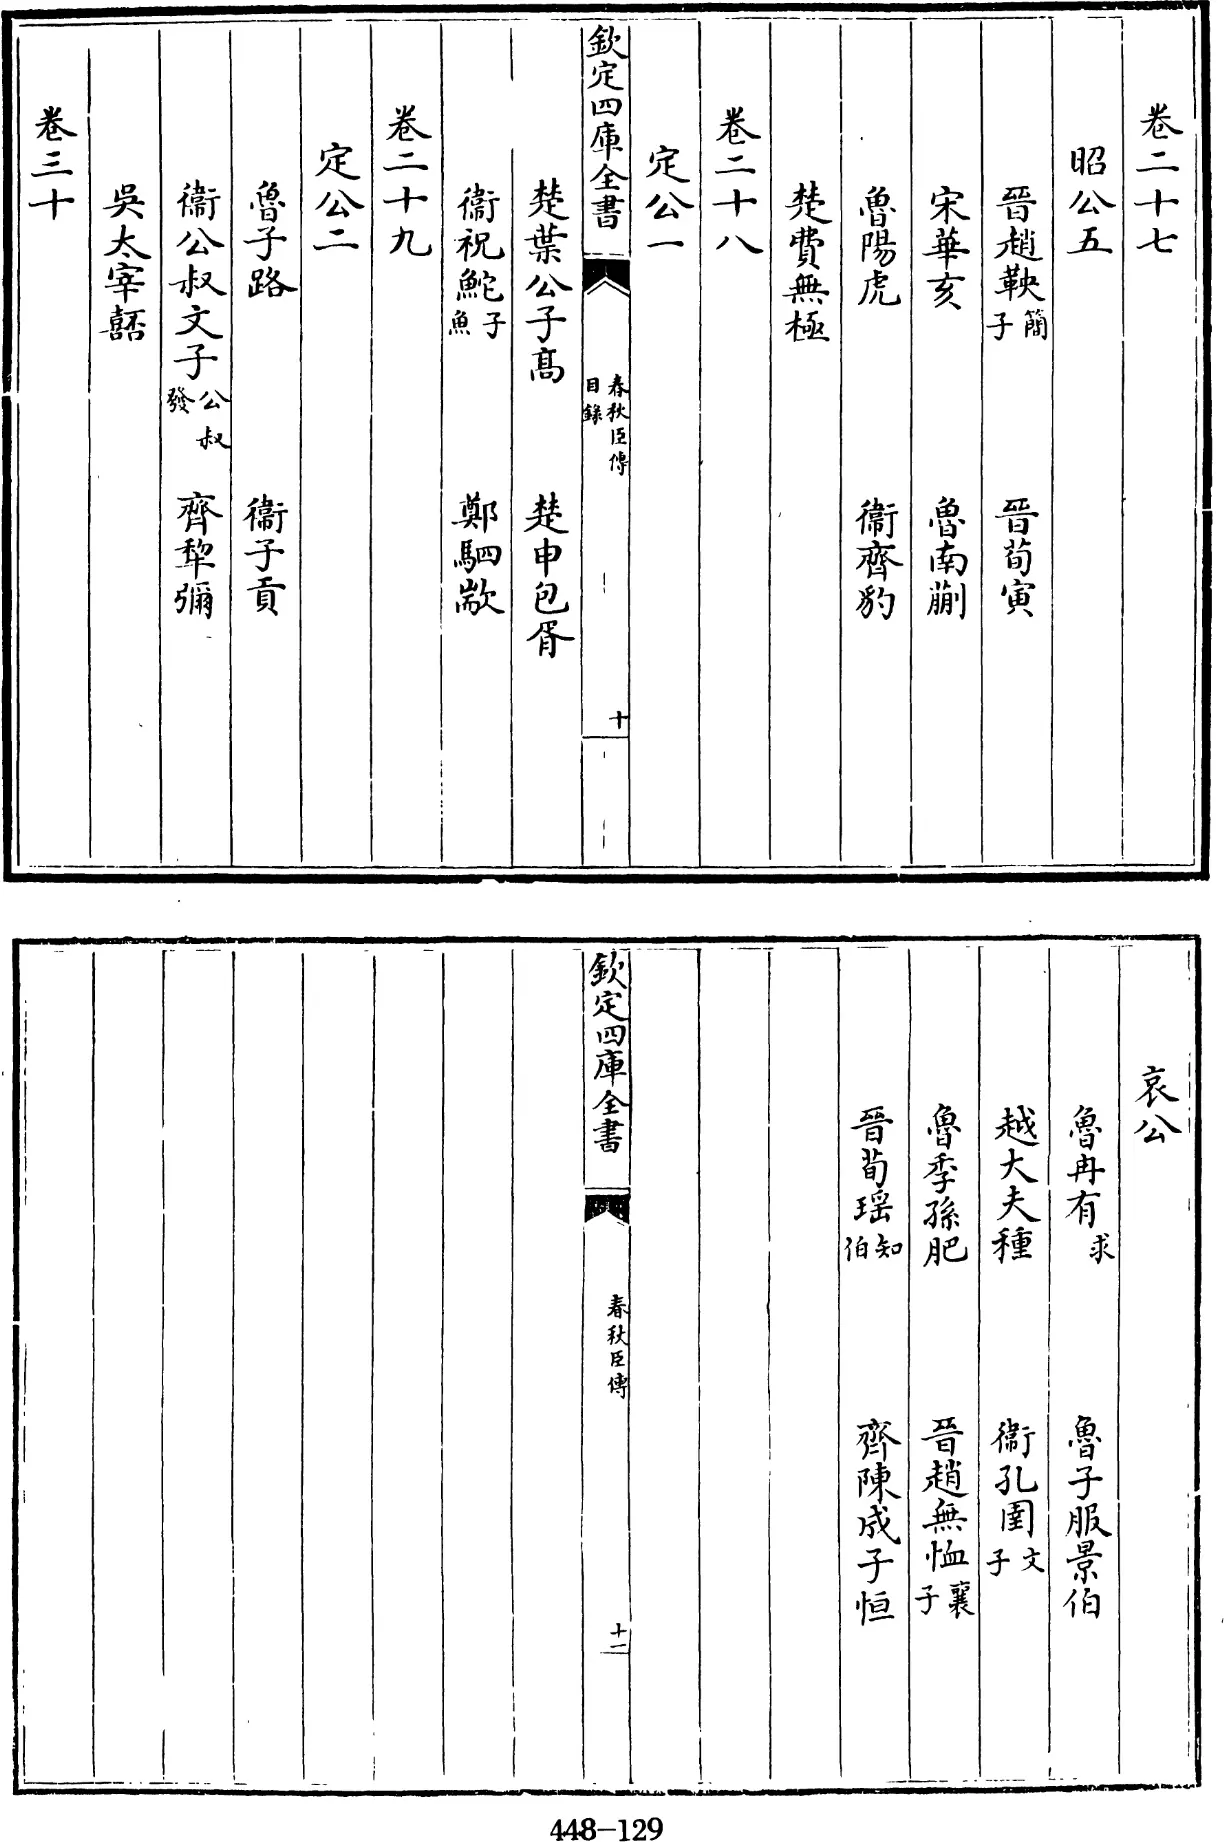 卷二十七
昭公五
晉趙鞅簡子　晉荀寅
宋華亥　魯南蒯
魯陽虎　衞齊豹
楚費無極
卷二十八
定公一
欽定四庫全書　春秋臣傳目錄　十
楚葉公子髙　楚申包胥
衞祝鮀子魚　鄭駟歂
卷二十九
定公二
魯子路　衞子貢
衞公叔文子公叔發　齊犂彌
吳太宰嚭
卷三十
哀公
魯冉有求　魯子服景伯
越大夫種　衞孔圉文子
魯季孫肥　晉趙無恤襄子
晉荀瑶知伯　齊陳成子恒
欽定四庫全書　春秋臣傳　十一
448-129